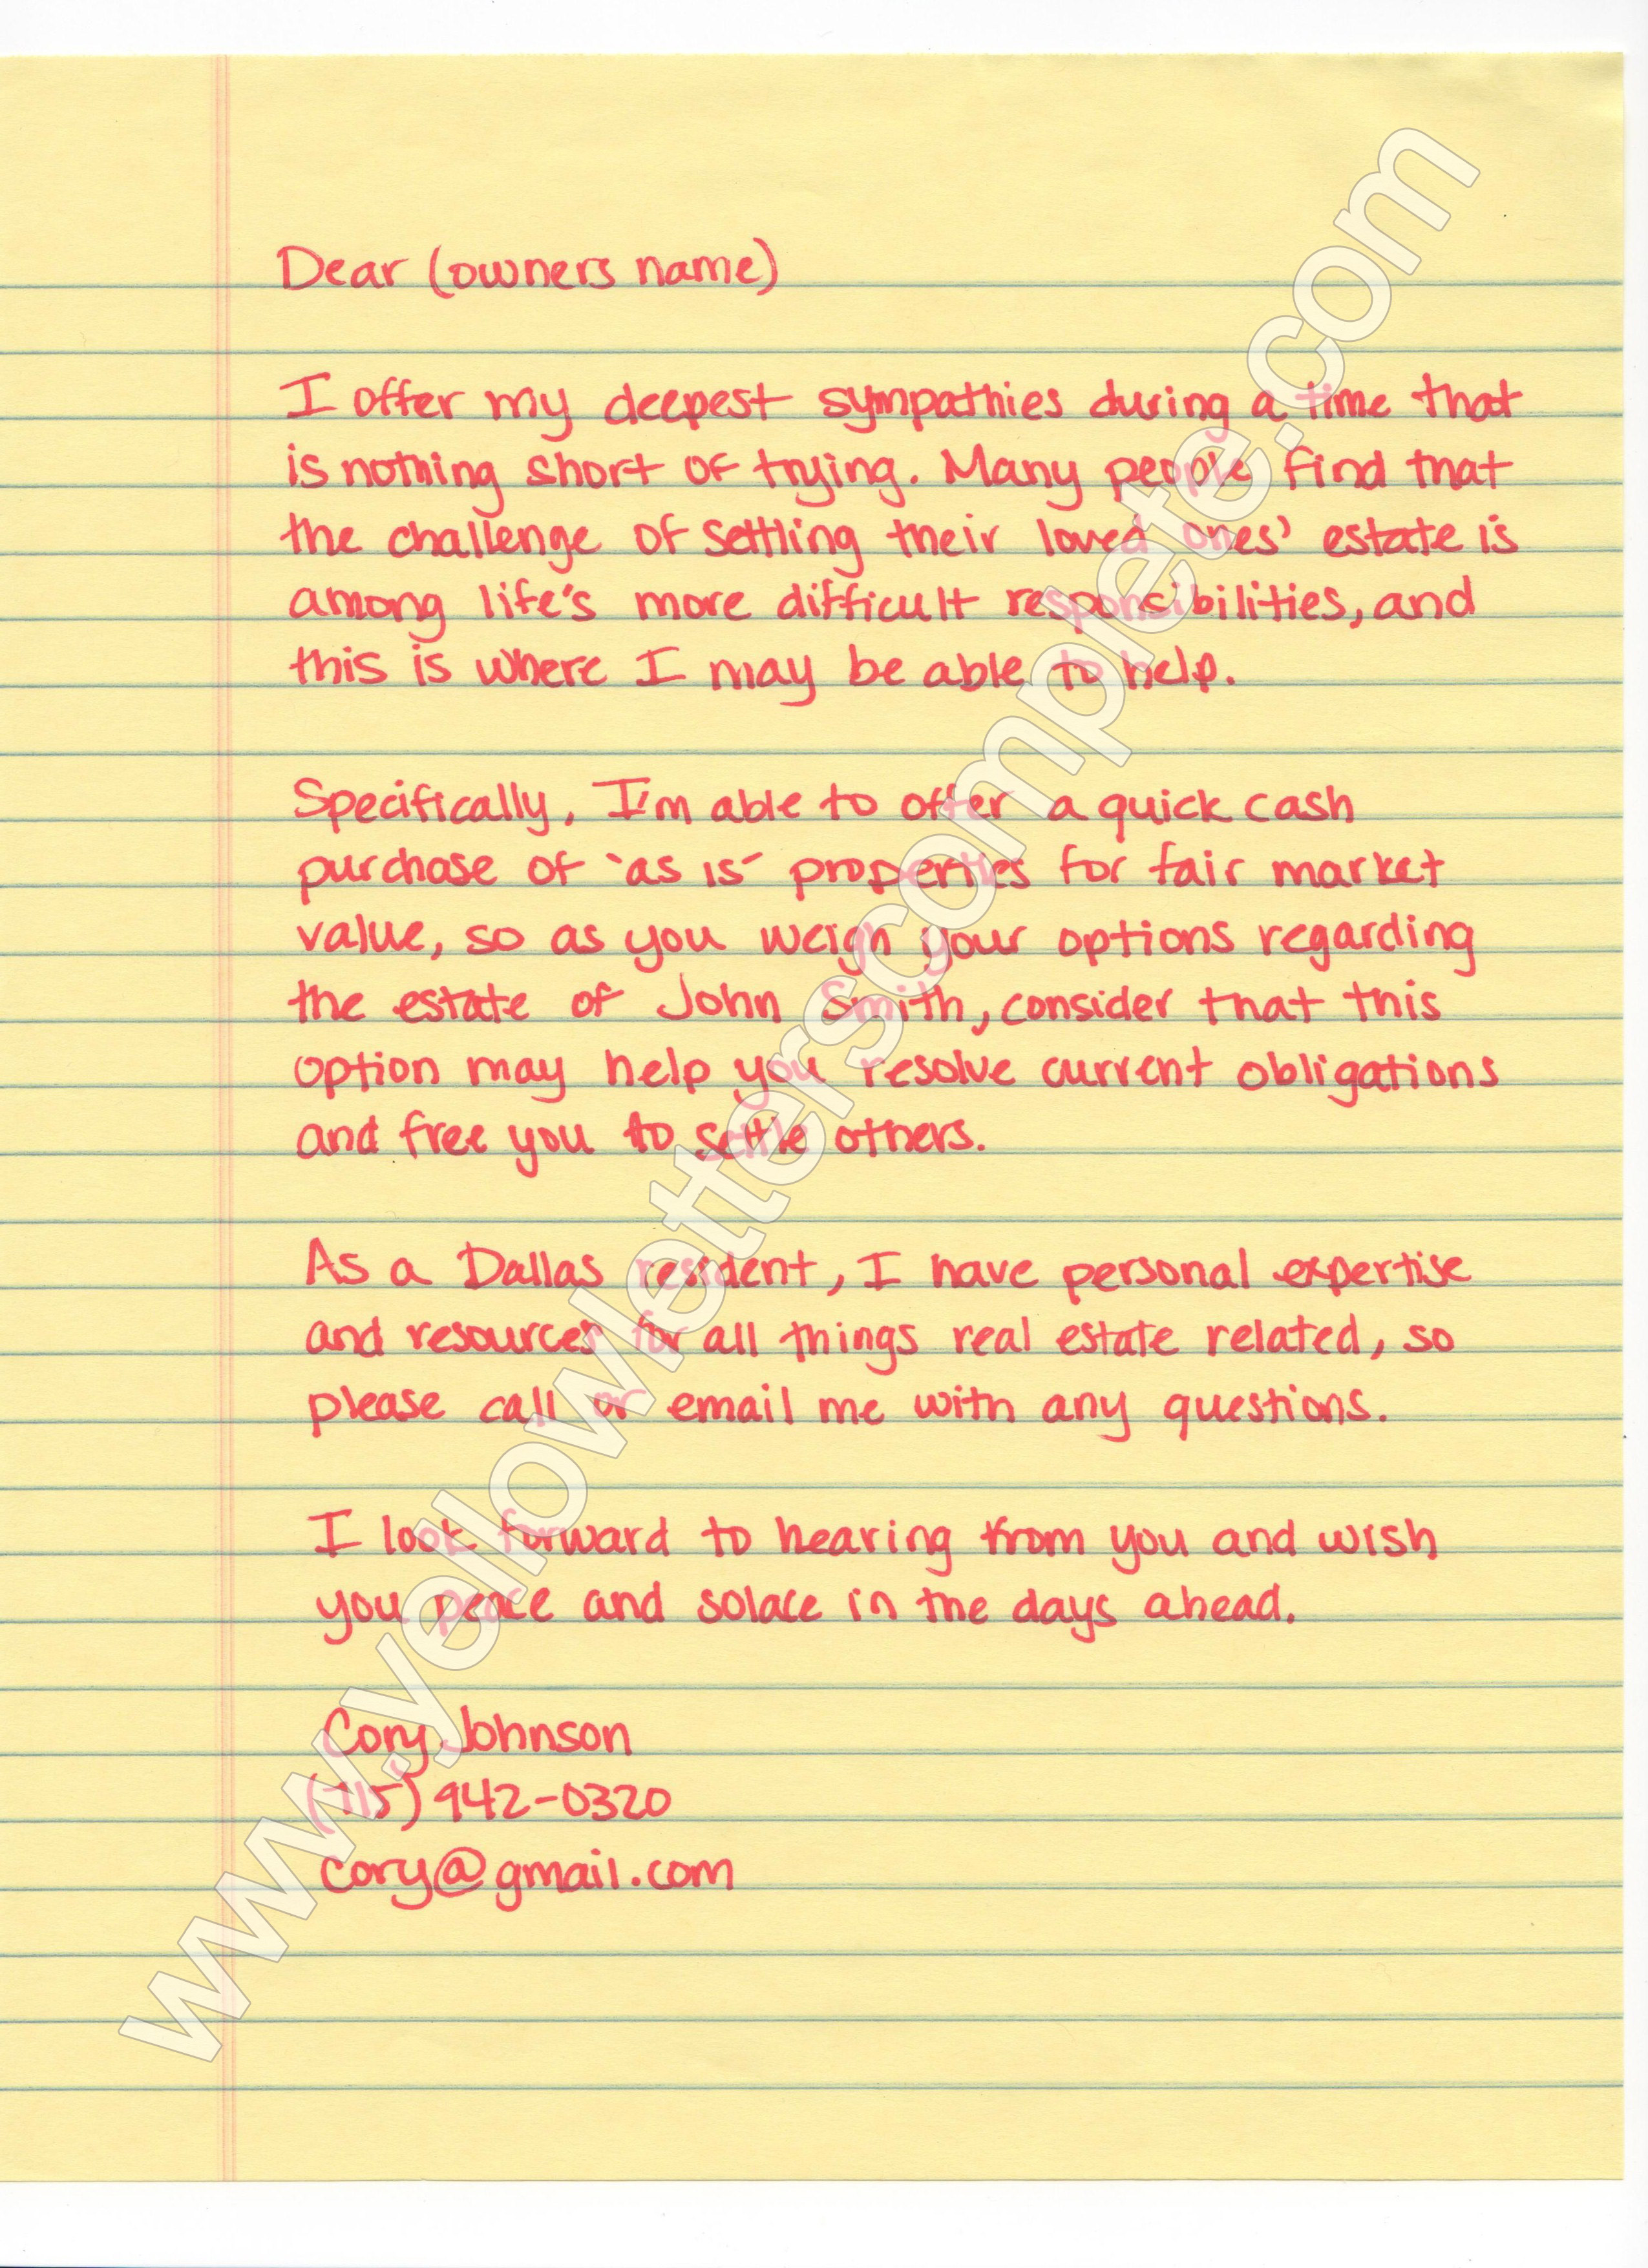 Dear (owners name)
I offer my deepest sympathies during a time that
is nothing short of trying. Many people find that
the challenge of settling their loved ones' estate is
among life's more difficult responsibilities, and
this is where I may be able to help.
Specifically, I'm able to offer a quick cash
purchase of 'as is' properties for fair market
value, so as you weigh your options regarding
the estate of John Smith, consider that this
option may help you resolve current obligations
and free you to settle others.
As a Dallas resident, I have personal expertise
and resources for all things real estate related, so
please call or email me with any questions.
I look forward to hearing from you and wish
you peace and solace in the days ahead.
Cory Johnson
(715) 942-0320
cory@gmail.com
www.yellowletterscomplete.com